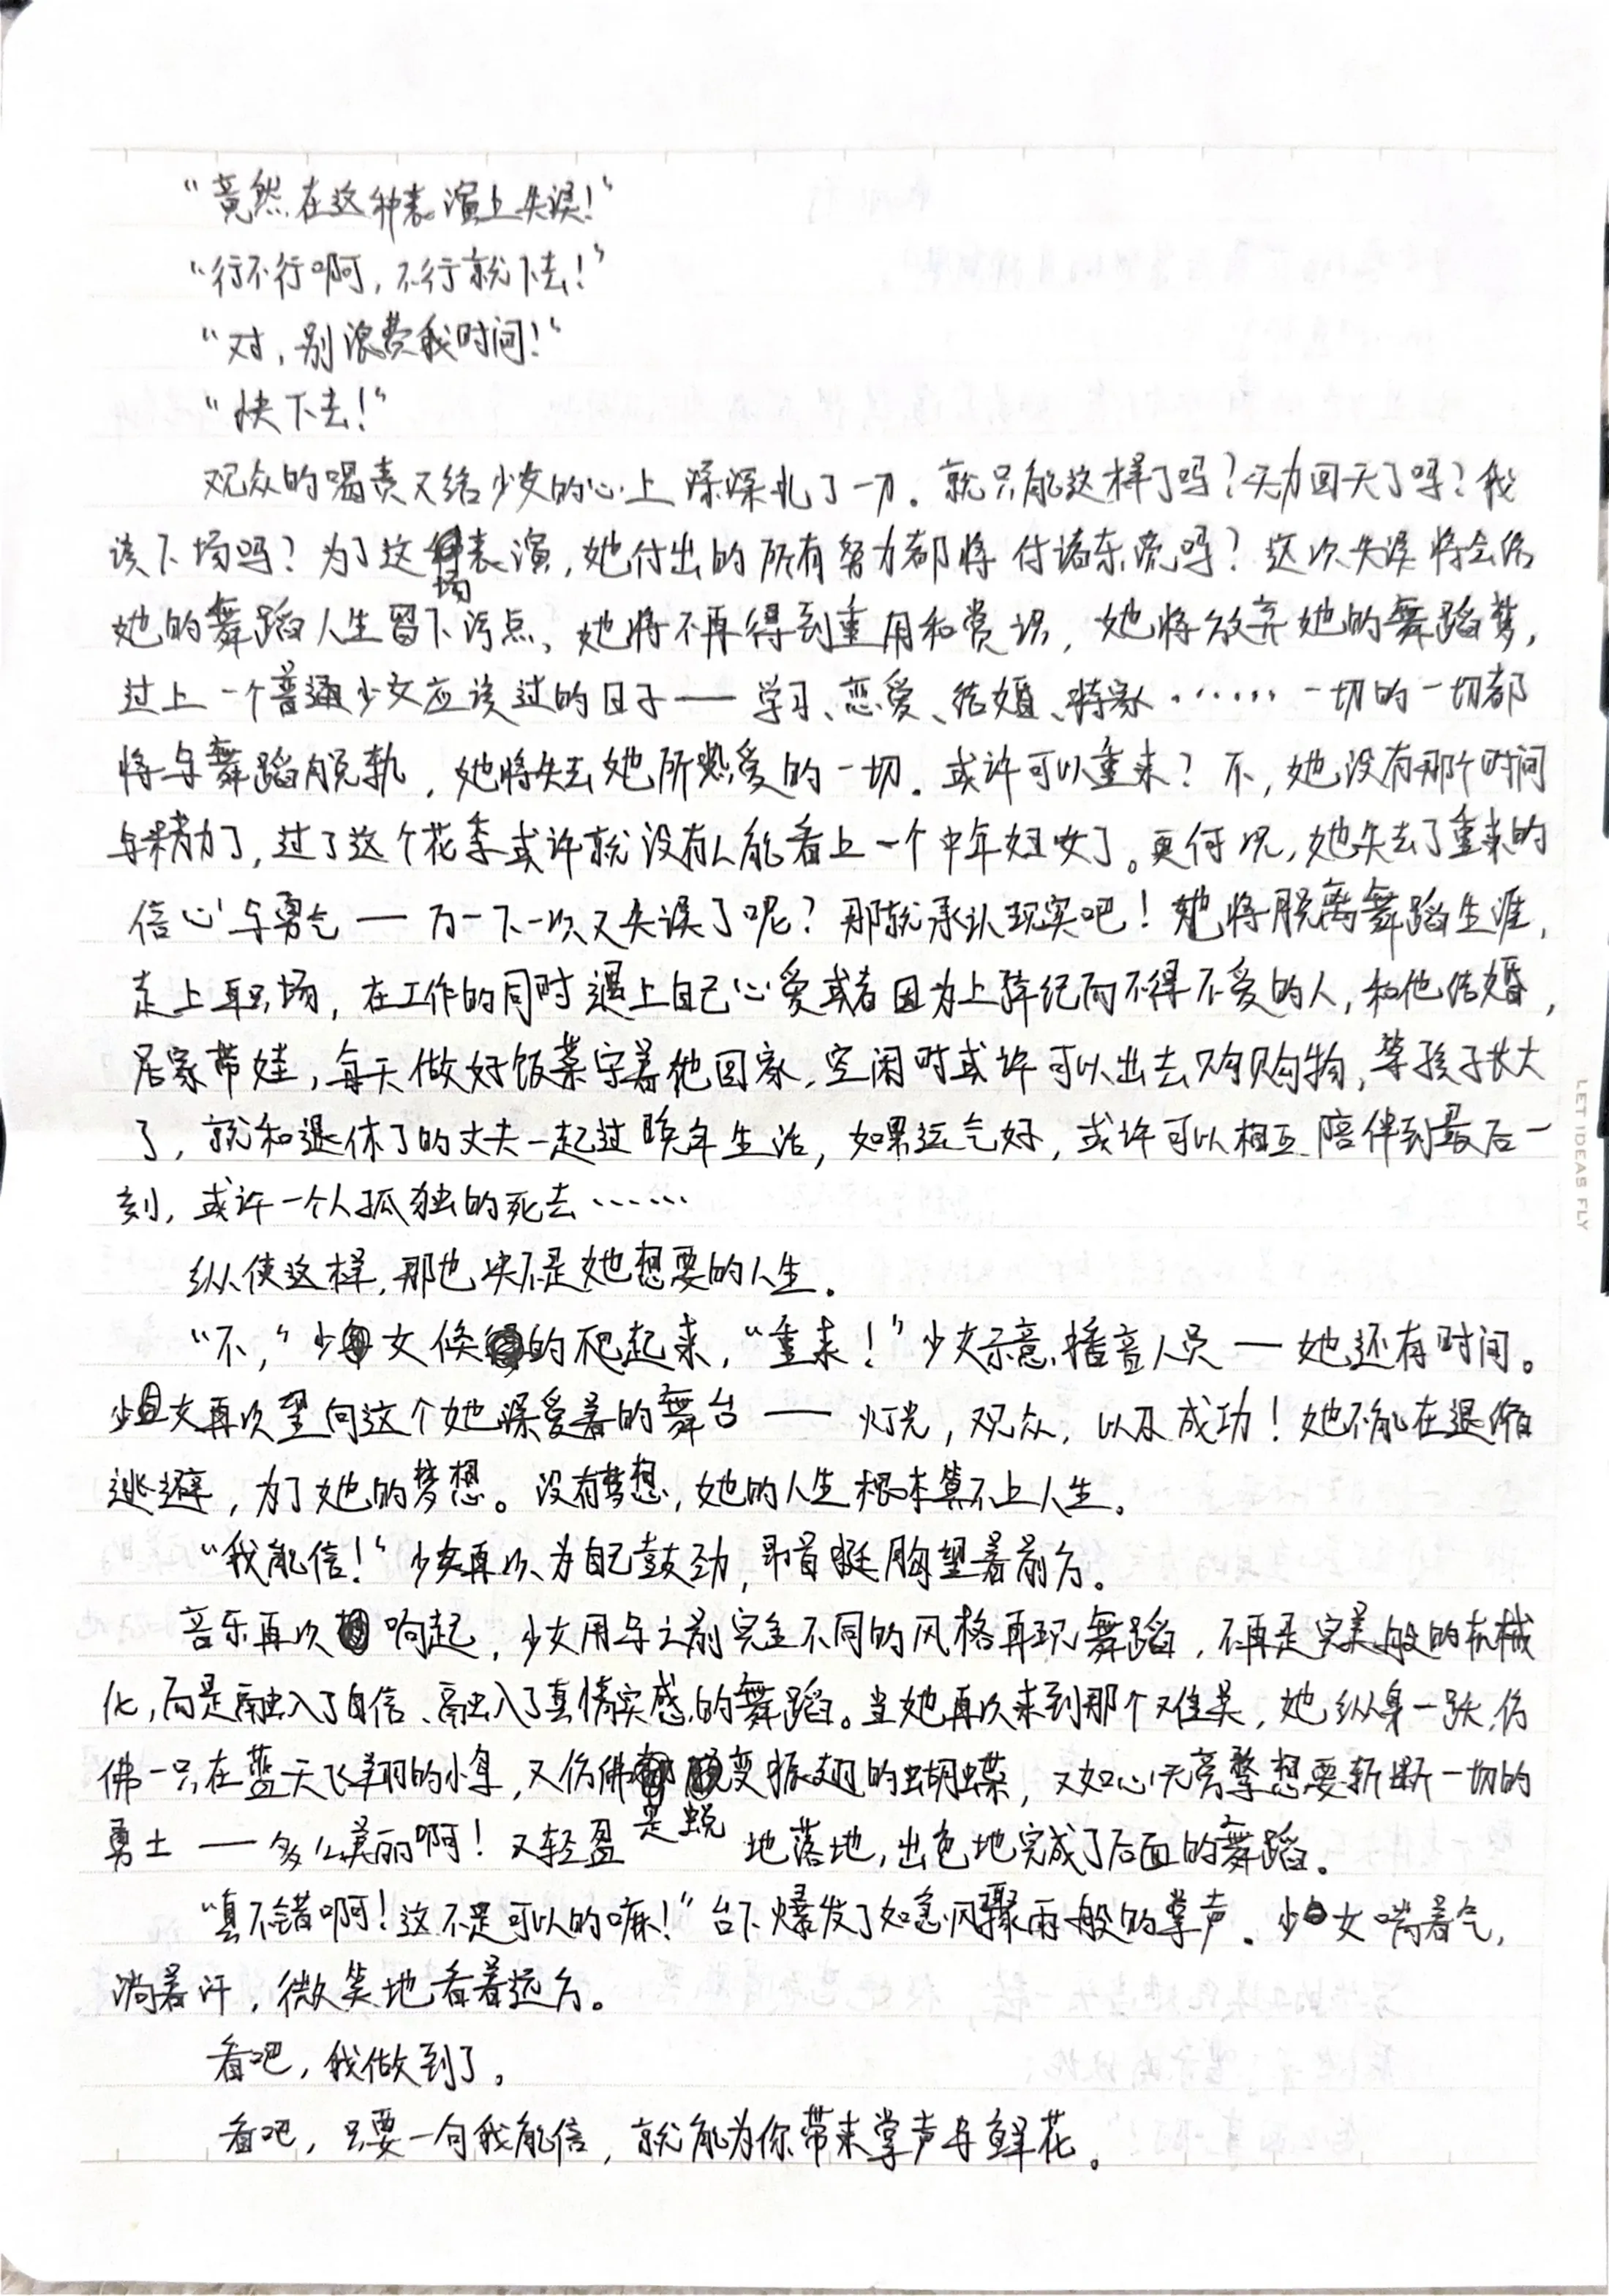 “竟然在这种表演上失误！”
“行不行啊，不行就下去！”
“对，别浪费我时间！”
“快下去！”
观众的喝责又给少女的心上深深扎了一刀。就只能这样了吗？无力回天了吗？我
该下场吗？为了这场表演，她付出的所有努力都将付诸东流吗？这次失误将会给
她的舞蹈人生留下污点，她将不再得到重用和赏识，她将放弃她的舞蹈梦，
过上一个普通少女应该过的日子——学习、恋爱、结婚、持家……一切的一切都
将与舞蹈脱轨，她将失去她所热爱的一切。或许可以重来？不，她没有那个时间
与精力了，过了这个花季或许就没有人能看上一个中年妇女了。更何况，她失去了重来的
信心与勇气——万一下一次又失误了呢？那就承认现实吧！她将脱离舞蹈生涯，
走上职场，在工作的同时遇上自己心爱或者因为上年纪而不得不爱的人，和他结婚，
居家带娃，每天做好饭菜守着他回家，空闲时或许可以出去购购物，等孩子长大
了，就和退休了的丈夫一起过晚年生活，如果运气好，或许可以相互陪伴到最后一
刻，或许一个人孤独的死去……
纵使这样，那也决不是她想要的人生。
“不，”少女倏的爬起来，“重来！”少女示意播音人员——她还有时间。
少女再次望向这个她深爱着的舞台——灯光，观众，以及成功！她不能在退缩
逃避，为了她的梦想。没有梦想，她的人生根本算不上人生。
“我能信！”少女再次为自己鼓劲，昂首挺胸望着前方。
音乐再次响起，少女用与之前完全不同的风格再现舞蹈，不再是完美般的机械
化，而是融入了自信、融入了真情实感的舞蹈。当她再次来到那个难关，她纵身一跃，仿
佛一只在蓝天飞翔的小鸟，又仿佛是蜕变振翅的蝴蝶，又如心无旁骛想要斩断一切的
勇士——多么美丽啊！又轻盈地落地，出色地完成了后面的舞蹈。
“真不错啊！这不是可以的嘛！”台下爆发了如急风骤雨般的掌声。少女喘着气，
淌着汗，微笑地看着远方。
看吧，我做到了。
看吧，只要一句我能信，就能为你带来掌声与鲜花。
LET IDEAS FLY